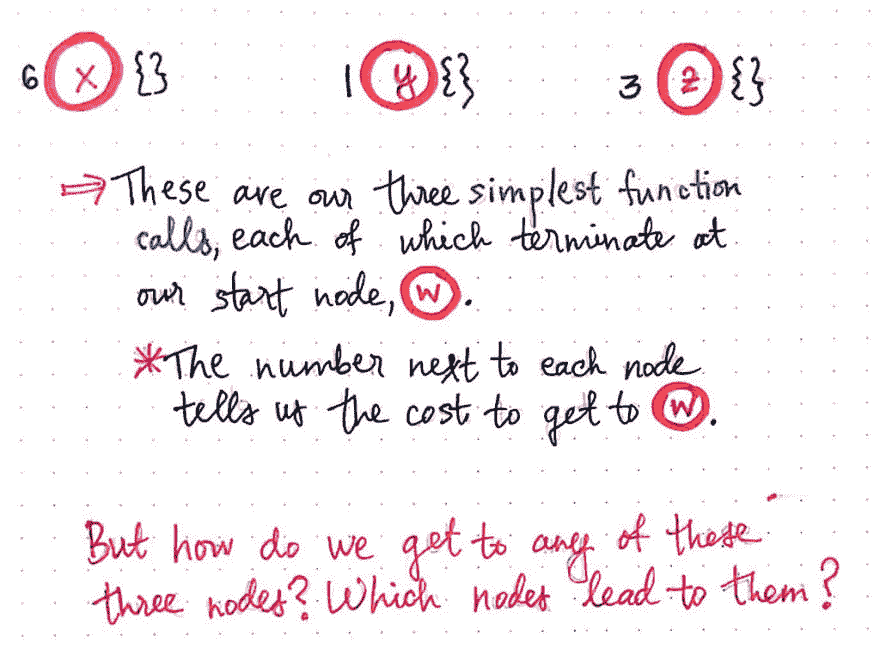 6 x {} 1 y {} 3 z {}
⇒ These are our three simplest function
calls, each of which terminate at
our start node, w.
*The number next to each node
tells us the cost to get to w.
But how do we get to any of these
three nodes? Which nodes lead to them?